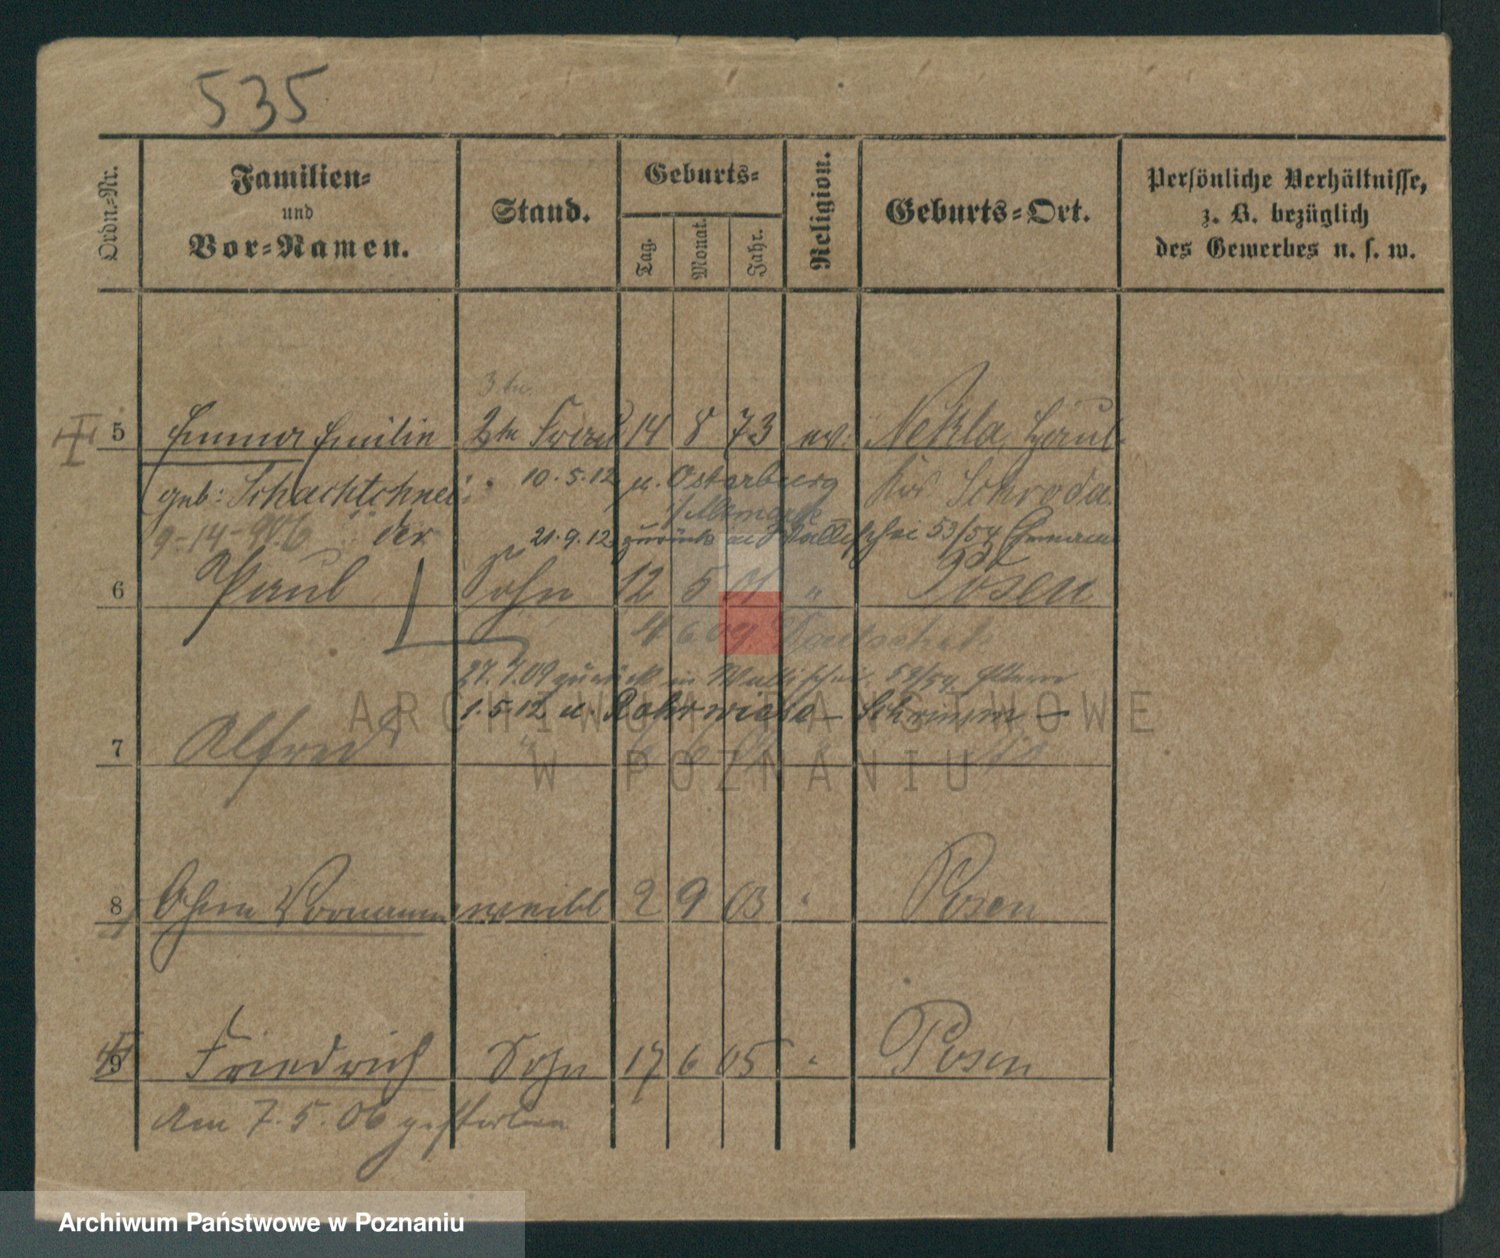 535
Ordn.-Nr.
Familien-
und
Vor-Namen.
Stand.
Geburts-
Tag.
Monat.
Jahr.
Religion.
Geburts-Ort.
Persönliche Verhältnisse,
z. B. bezüglich
des Gewerbes u. s. w.
5 Emma Emilie 2te Frau 14 8 73 ev. Nekla
geb: Schachtschnei: 10.5.12 u. Osterburg Kr. Schroda
der 21.9.12 zurück Wallischei 53/54
6 Paul Sohn 12 5 01 " Posen
4 6 09
27.7.09 zurück in Wallischei 53/54
1.5.12 u. Schrimm
7 Alfred "
8 Ohne Vornamen weibl 2 9 03 " Posen
9 Friedrich Sohn 17 6 05 " Posen
Am 7.5.06 gestorben
ARCHIWUM PAŃSTWOWE
W POZNANIU
Archiwum Państwowe w Poznaniu